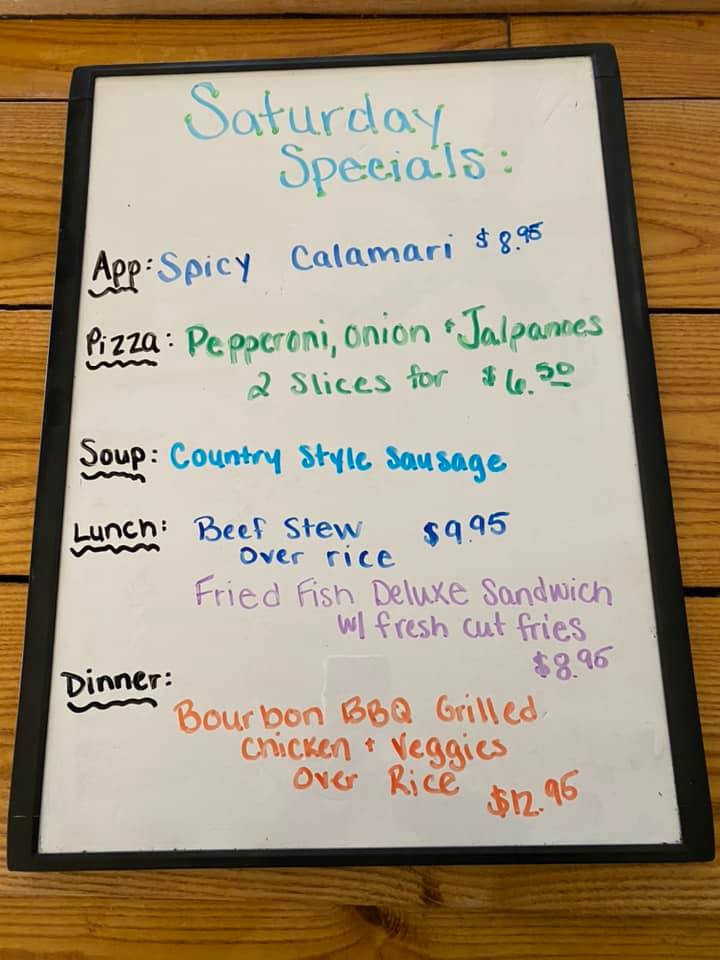 Saturday
Specials:
App: Spicy Calamari $8.95
Pizza: Pepperoni, onion + Jalpanoes
2 Slices for $6.50
Soup: Country Style Sausage
Lunch: Beef Stew $9.95
over rice
Fried Fish Deluxe Sandwich
w/ fresh cut fries
$8.95
Dinner:
Bourbon BBQ Grilled
Chicken + Veggies
Over Rice $12.95